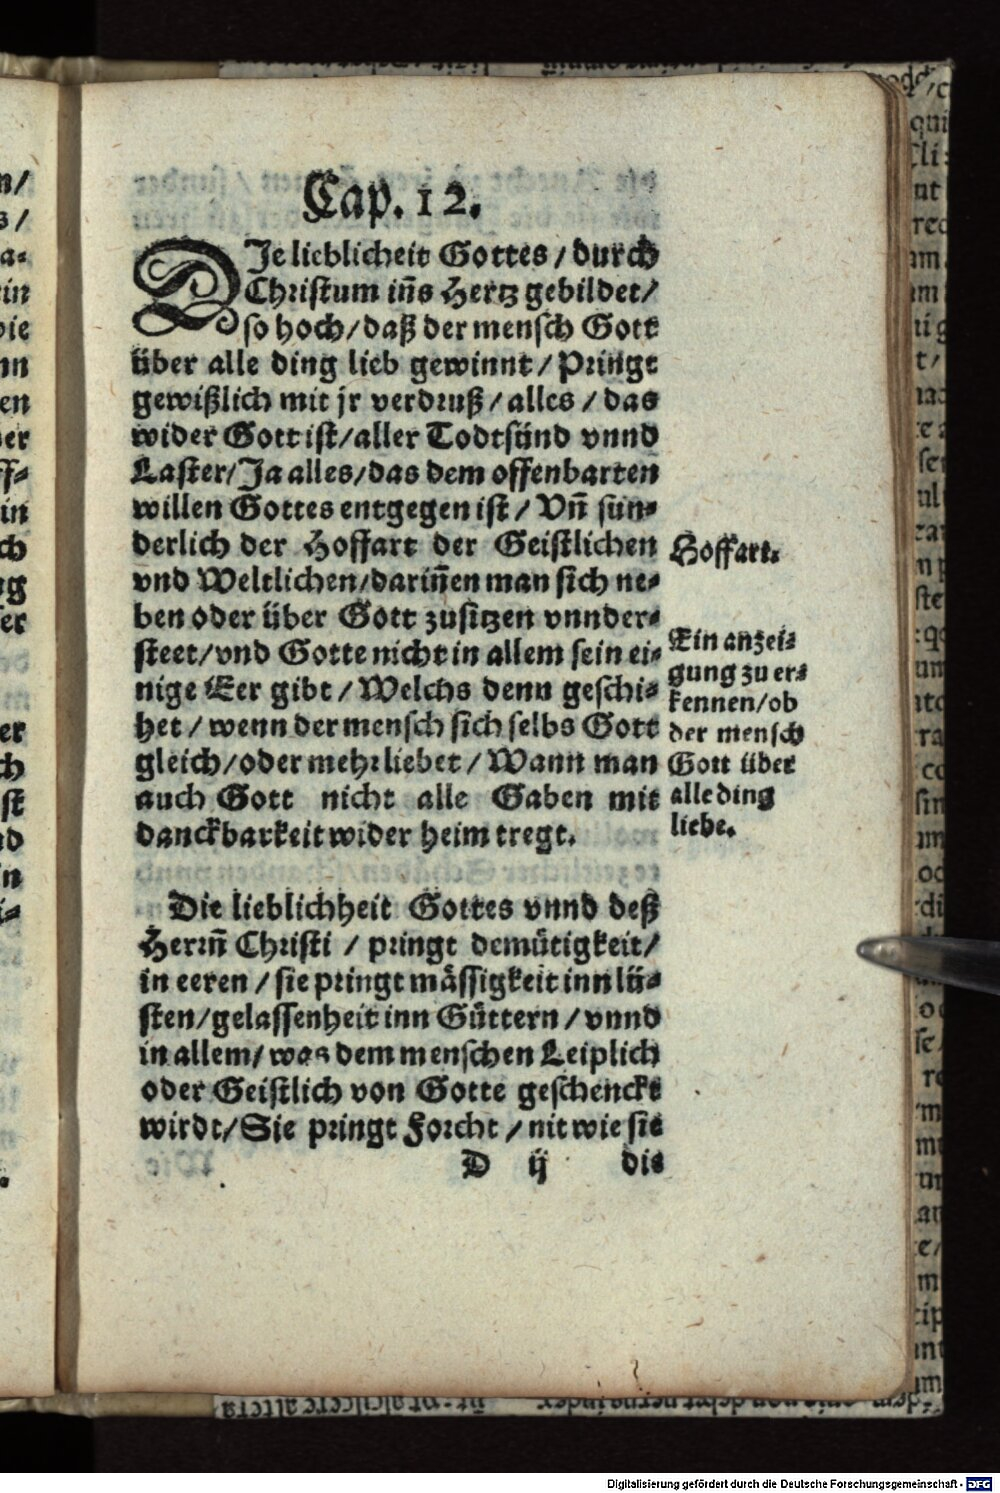 Cap. 12.
DJe lieblicheit Gottes / durch
Christum in̄s Hertz gebildet /
so hoch / daß der mensch Gott
über alle ding lieb gewinnt / Pringt
gewißlich mit jr verdruß / alles / das
wider Gott ist / aller Todtsünd vnnd
Laster / Ja alles / das dem offenbarten
willen Gottes entgegen ist / Vn̄ sun-
derlich der Hoffart der Geistlichen
vnd Weltlichen / darin̄en man sich ne-
ben oder über Gott zusitzen vnnder-
steet / vnd Gotte nicht in allem sein ei-
nige Eer gibt / Welchs denn geschi-
het / wenn der mensch sich selbs Gott
gleich / oder mehr liebet / Wann man
auch Gott nicht alle Gaben mit
danckbarkeit wider heim tregt.
Hoffart.
Ein anzei-
gung zu er-
kennen / ob
der mensch
Gott über
alle ding
liebe.
Die lieblichheit Gottes vnnd deß
Herrn̄ Christi / pringt demütigkeit /
in eeren / sie pringt mässigkeit inn lü-
sten / gelassenheit inn Güttern / vnnd
in allem / was dem menschen Leiplich
oder Geistlich von Gotte geschenckt
wirdt / Sie pringt Forcht / nit wie sie
D ij die
Digitalisierung gefördert durch die Deutsche Forschungsgemeinschaft - DFG